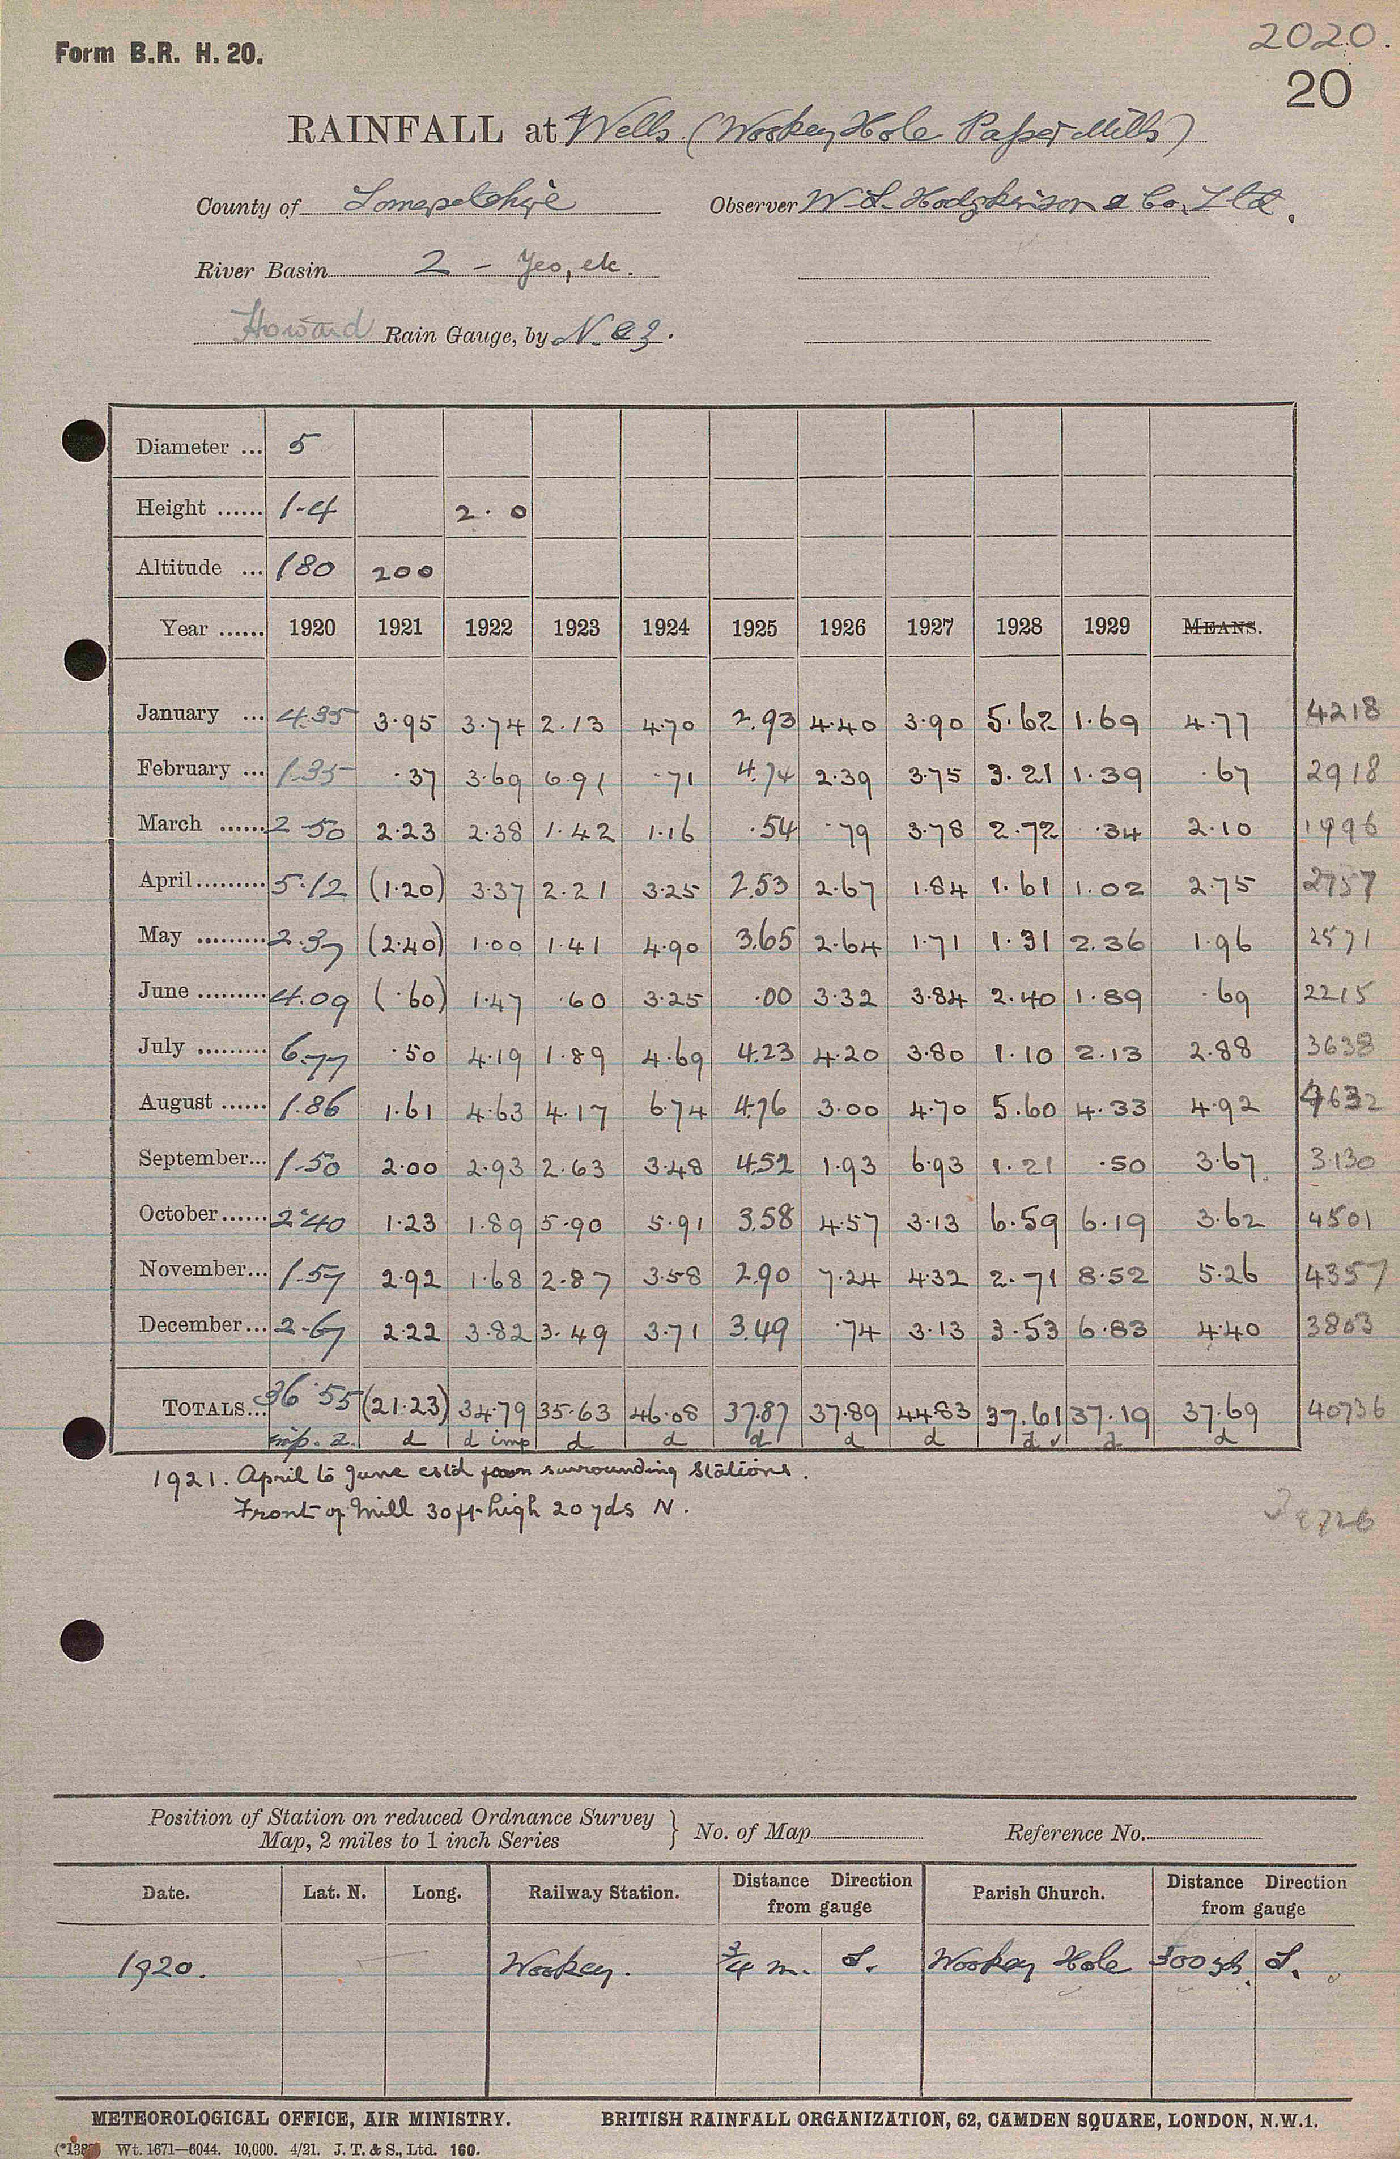 2020.
Form B.R. H. 20.
20
RAINFALL at Wells (Wookey Hole Paper Mills)
County of Somersetshire Observer W. S. Hodgkinson & Co. Ltd.
River Basin 2 - Yeo, etc.
Howard Rain Gauge, by N. & Z.
Diameter ... 5
Height ...... 1-4 2. 0
Altitude ... 180 200
Year ...... 1920 1921 1922 1923 1924 1925 1926 1927 1928 1929 MEANS.
January ... 4.35 3.95 3.74 2.13 4.70 2.93 4.40 3.90 5.62 1.69 4.77 4218
February ... 1.35 .37 3.69 6.91 .71 4.74 2.39 3.75 3.21 1.39 .67 2918
March ...... 2.50 2.23 2.38 1.42 1.16 .54 .79 3.78 2.72 .34 2.10 1996
April ......... 5.12 (1.20) 3.37 2.21 3.25 2.53 2.67 1.84 1.61 1.02 2.75 2757
May ......... 2.37 (2.40) 1.00 1.41 4.90 3.65 2.64 1.71 1.31 2.36 1.96 2571
June ......... 4.09 (.60) 1.47 .60 3.25 .00 3.32 3.84 2.40 1.89 .69 2215
July ......... 6.77 .50 4.19 1.89 4.69 4.23 4.20 3.80 1.10 2.13 2.88 3638
August ...... 1.86 1.61 4.63 4.17 6.74 4.76 3.00 4.70 5.60 4.33 4.92 4632
September... 1.50 2.00 2.93 2.63 3.48 4.52 1.93 6.93 1.21 .50 3.67 3130
October...... 2.40 1.23 1.89 5.90 5.91 3.58 4.57 3.13 6.59 6.19 3.62 4501
November... 1.57 2.92 1.68 2.87 3.58 2.90 7.24 4.32 2.71 8.52 5.26 4357
December... 2.67 2.22 3.82 3.49 3.71 3.49 .74 3.13 3.53 6.83 4.40 3803
TOTALS... 36.55 (21.23) 34.79 35.63 46.08 37.87 37.89 44.83 37.61 37.19 37.69 40736
imp. 2. d d imp d d d d d d ✓ d d
1921. April to June estd from surrounding stations.
Front of Mill 30ft high 20 yds N.
Position of Station on reduced Ordnance Survey
Map, 2 miles to 1 inch Series } No. of Map Reference No.
Date. Lat. N. Long. Railway Station. Distance Direction from gauge Parish Church. Distance Direction from gauge
1920. Wookey. 3/4 m. S. Wookey Hole 300 yds. S.
METEOROLOGICAL OFFICE, AIR MINISTRY. BRITISH RAINFALL ORGANIZATION, 62, CAMDEN SQUARE, LONDON, N.W.1.
Wt. 1671—6044. 10,000. 4/21. J. T. & S., Ltd. 160.